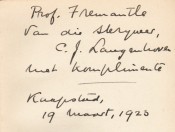 Prof. Fremantle
van die skrywer,
C. J. Langenhoven
met komplimente
Kaapstad,
19 Maart, 1920